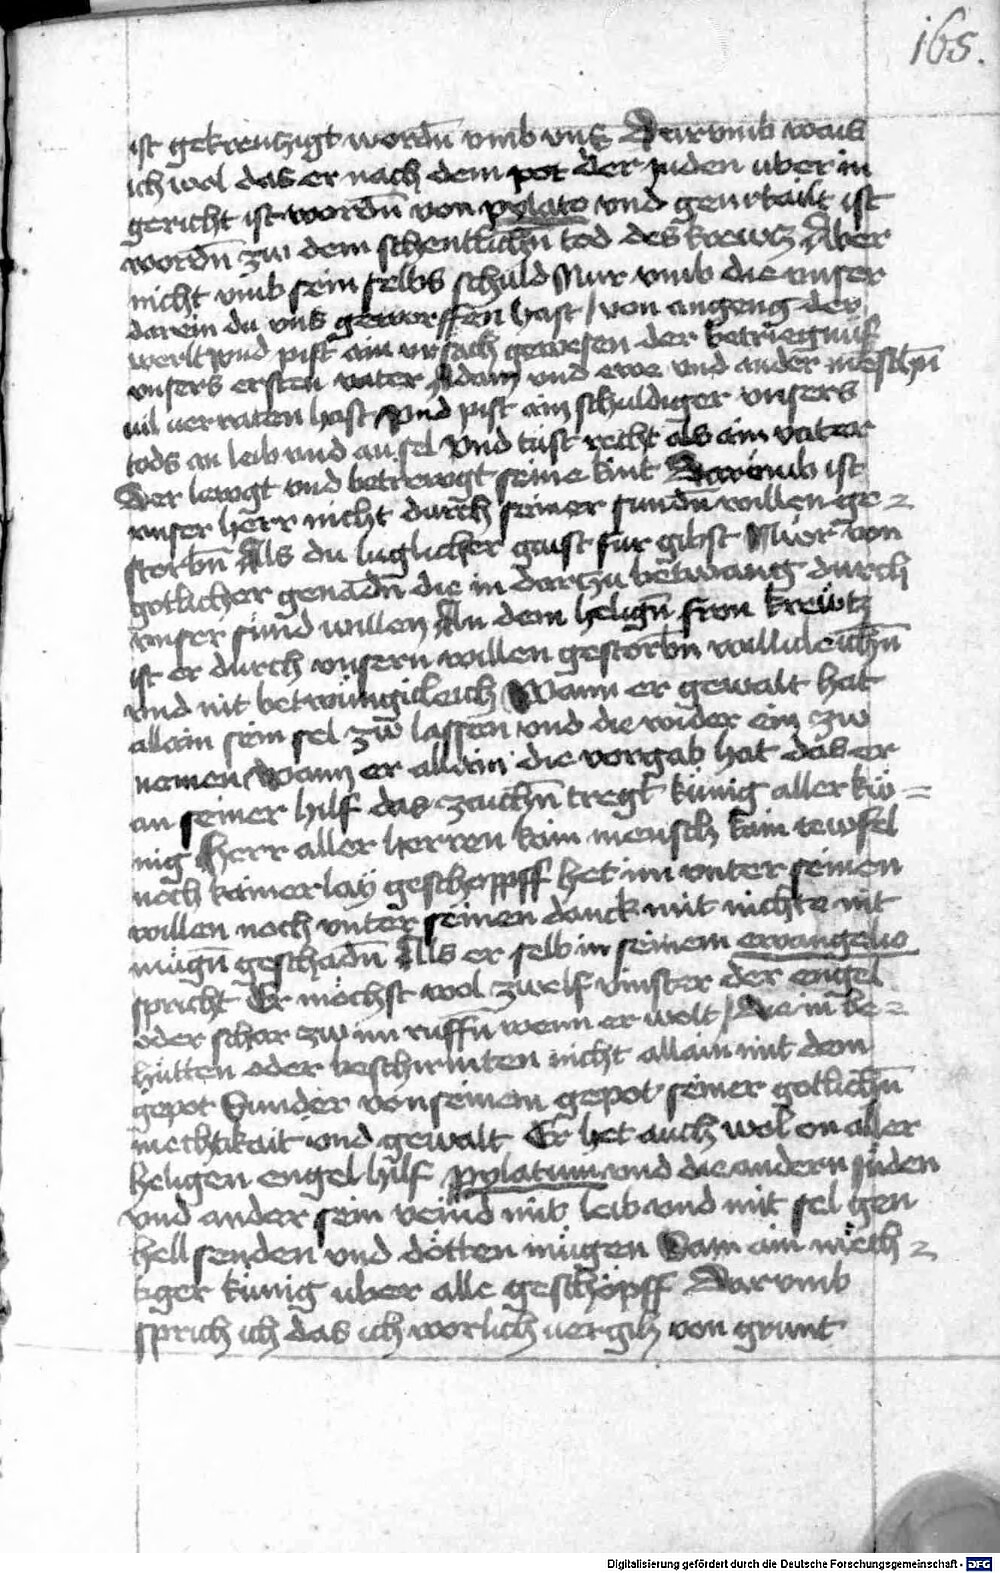 165.
ist gekreutzigt wordn̄ vmb vns Darvmb wais
ich wol das er nach dem pot der juden uber in
gericht ist wordn̄ von pylato vnd geurtailt ist
wordn̄ zw dem schentlichn̄ tod des krewtz Aber
nicht vmb sein selbs schuld Nur vmb die vnser
darein du vns geworffen hast / von angeng der
werlt vnd pist ain vrsach gewesen der betriegnus
vnsers ersten vater Adam vnd eve vnd ander meschn̄
vil verraten hast vnd pist ain schuldiger vnsers
tods an leib vnd an sel Vnd tust recht als ain vater
Der lewgt vnd betrewgt seine kint Darumb ist
vnser herr nicht durch seiner sundn̄ willen ge-
storbn̄ Als du luglicher gaist fur gibst Nur von
gotlicher genadn̄ die in dartzu betwang durch
vnser sund willen An dem helign̄ fron kreutz
ist er durch vnsern willen gestorbn̄ willicleichn̄
vnd nit betwungicleich Wann er gewalt hat
allain sein sel zw lassen vnd die wider ein zw
nemen Wann er allain die vorgab hat das er
an seiner hilf das zaichn̄ tregt kunig aller ku-
nig Herr aller herren kain mensch kain tewfel
noch kainerlay geschopff het im vnter seinen
willen noch vnter seinen danck mit nichte nit
mugn̄ geschadn̄ Als er selb in seinem ewangelio
spricht Er mochst wol zwelf vinster der engel
oder schar zw im ruffn̄ wenn er wolt / Die in be-
hutten oder beschirmten nicht allain mit dem
gepot Sunder von seinem gepot seiner gotlichn̄
mechtikait vnd gewalt Er het auch wol on aller
heligen engel hilf pylatum vnd die andern juden
vnd ander sein veind mit leib vnd mit sel gen
hell senden vnd dötten mügen Sam ain mech-
tiger kunig uber alle geschöpff Darvmb
sprich ich das ich worlich vergih von grunt
Digitalisierung gefördert durch die Deutsche Forschungsgemeinschaft - DFG